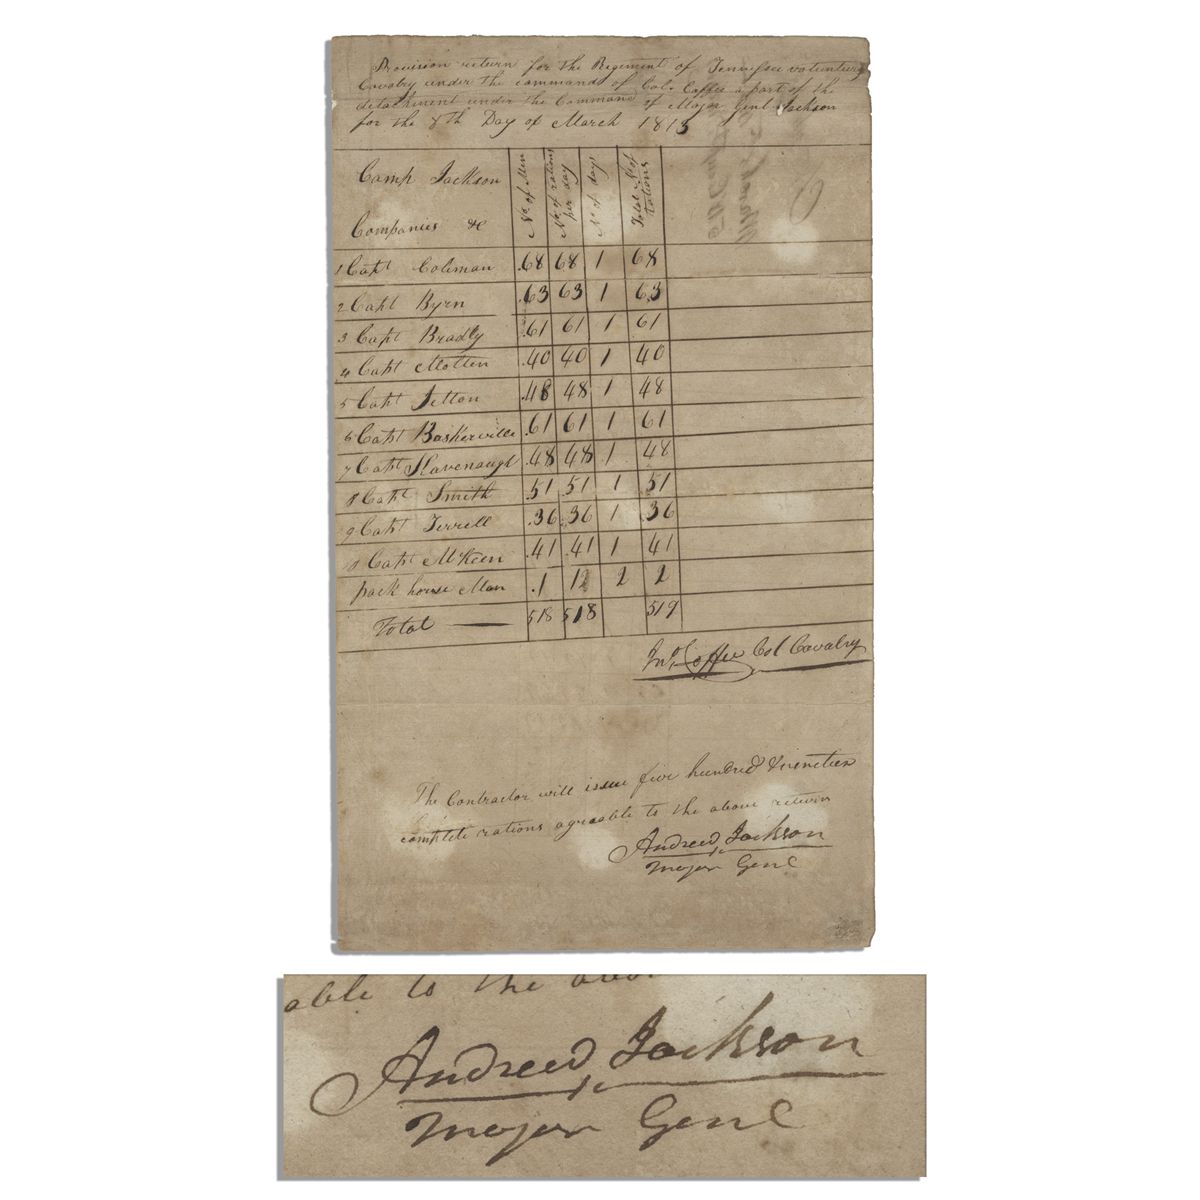 Provision return for the Regement of Tennessee voluntury
Cavalry under the command of Col. Coffee a part of the
detachment under the Command of Major Genl Jackson
for the 8th Day of March 1813
Camp Jackson
Companies &c
No. of Men
No. of rations per day
No. of days
Total No. of rations
1 Capt Coleman .68 68 1 68
2 Capt Byrn .63 63 1 63
3 Capt Bradly .61 61 1 61
4 Capt Motten .40 40 1 40
5 Capt Jetton .48 48 1 48
6 Capt Baskerville .61 61 1 61
7 Capt Kavenaugh .48 48 1 48
8 Capt Smith .51 51 1 51
9 Capt Terrell .36 .36 1 .36
10 Capt McKeen .41 .41 1 41
pack house Man .1 12 2 2
Total 518 518 519
Jno. Coffee Col Cavalry
The Contractor will issue five hundred & nineteen
complete rations agreable to the above return
Andrew Jackson
Major Genl
able to the abov
Andrew Jackson
Major Genl